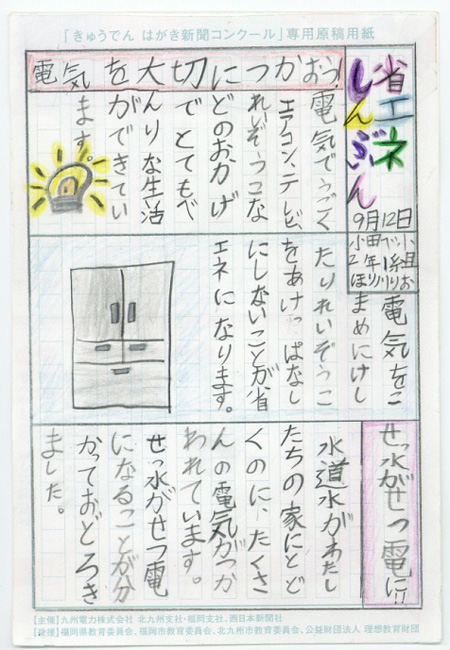 「きゅうでん はがき新聞コンクール」専用原稿用紙
省エネ
しんぶん
9月12日
2年1組
電気を大切につかおう!
電気でうごく
エアコン、テレビ、
れいぞうこな
どのおかげ
でとてもべ
んりな生活
ができてい
ます。
電気をこ
まめにけし
たりれいぞうこ
をあけっぱなし
にしないことが省
エネになります。
せっ水がせつ電に!!
水道水がわたし
たちの家にとど
くのに、たくさ
んの電気がつか
われています。
せっ水がせつ電
になることが分
かっておどろき
ました。
【主催】九州電力株式会社 北九州支社・福岡支社、西日本新聞社
【後援】福岡県教育委員会、福岡市教育委員会、北九州市教育委員会、公益財団法人 理想教育財団